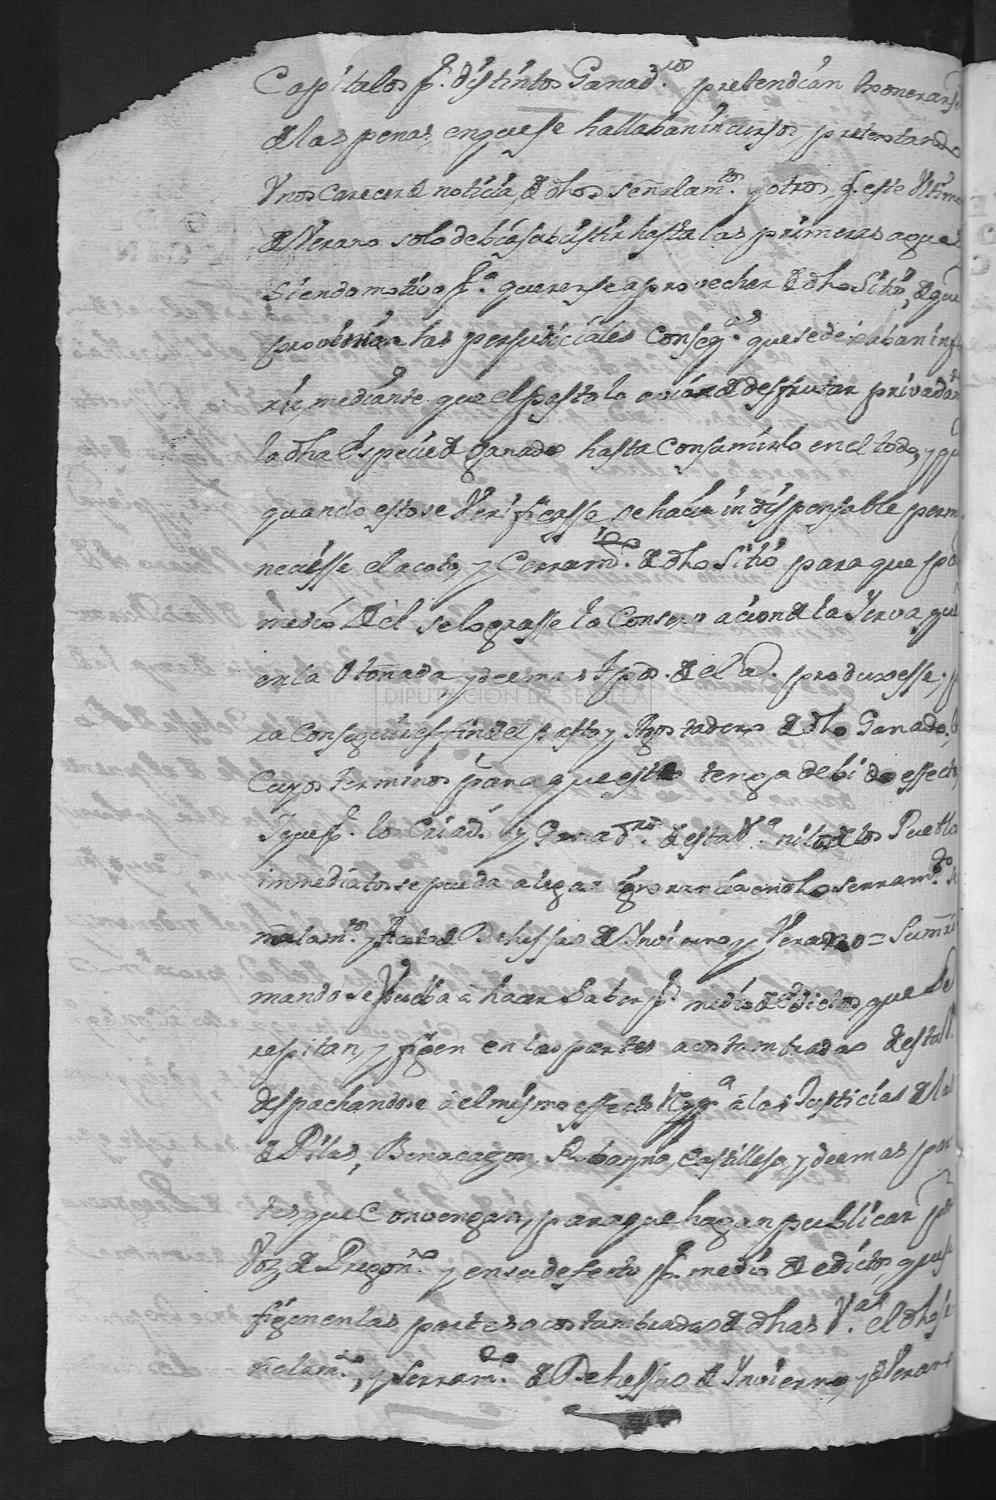 Capítalos p.r distintos Ganad.ros pretendían Exonerarse
de las penas, en que se hallaban incursos, pretextando
Vnos Carecer de noticia, de dhos señalam.tos y otros, q.e este Vltimo
de Verano solo debía subsistir hasta las primeras aguas
siendo motivo p.a quererse aprovechar de dho Sitio, de que
provenian las perjudiciales Conseq.as que se dexaban infe
rir, mediante que el pasto lo avian de desfrutar privadam.te
la dha Especie de ganado hasta Consumirlo en el todo, y q.e
quando esto se Verificasse se hacía indispensable perma
neciesse el acoto, y Cerram.to de dho Sitio para que por
medio de el se lograsse la Conservacion de la Yerva que
en la Otoñada y demas tpos. de el a.o produxesse, p.a
DIPUTACIÓN DE SEVILLA
la Consequiesfin de el pasto y Agostadero de dho Ganado,
Cuyos terminos para que esto tenga debido effecto,
Y que p.r los Criad.s y Ganad.ros de esta V.a ni los de los Pueblos
immediatos se pueda alegar ignorancia en dho serram.to se
ñalam.to y acoto de Dehessas de Ynvierno y Verano = Su mrd
mando se buelba à hacer Saber p.r medio de Edictos, que se
repitan, y fixen en las partes acostumbradas de esta V.a
despachandose à el mismo effecto Req.a à las Justicias de las
de Pilas, Benacazon, Robayna, Castilleja, y demas par
tes que Convengan, para que hagan publicar por
Voz de Pregon.o y en su defecto p.r medio de edictos, que se
fixen en las partes acostumbradas de dhas V.as el dho se
ñalam.to, y serram.to de Dehessas de Ynvierno, y Verano